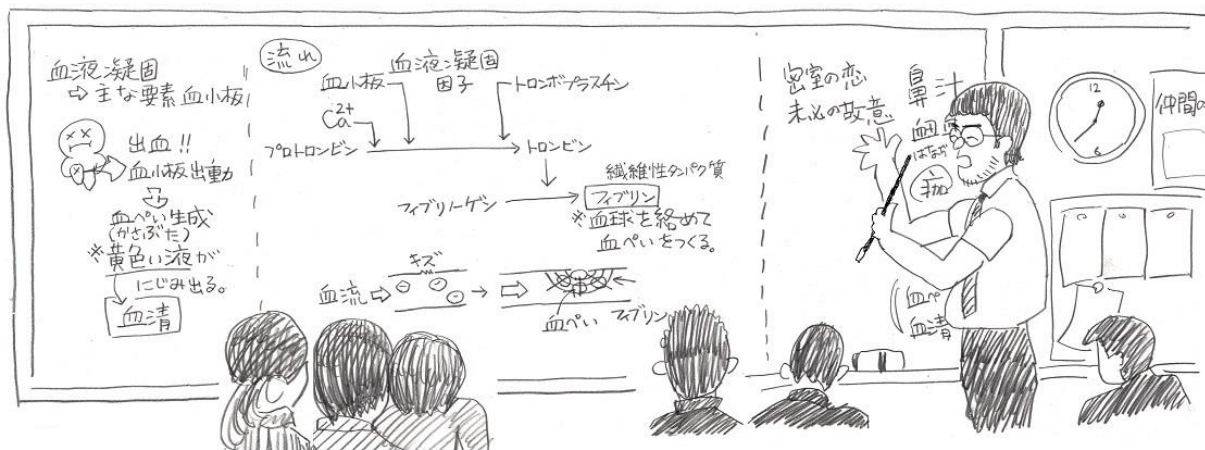 血液凝固
⇨ 主な要素 血小板
出血!!
血小板出動
血ぺい生成
(かさぶた)
※黄色い液が
にじみ出る。
血清
流れ
血小板
血液凝固
因子
トロンボプラスチン
Ca2+
プロトロンビン
トロンビン
繊維性タンパク質
フィブリノーゲン
フィブリン
※血球を絡めて
血ぺいをつくる。
キズ
血流
血ぺい
フィブリン
密室の恋
未必の故意
鼻汁
はなぢ
血ペ
血清
12
6
仲間の